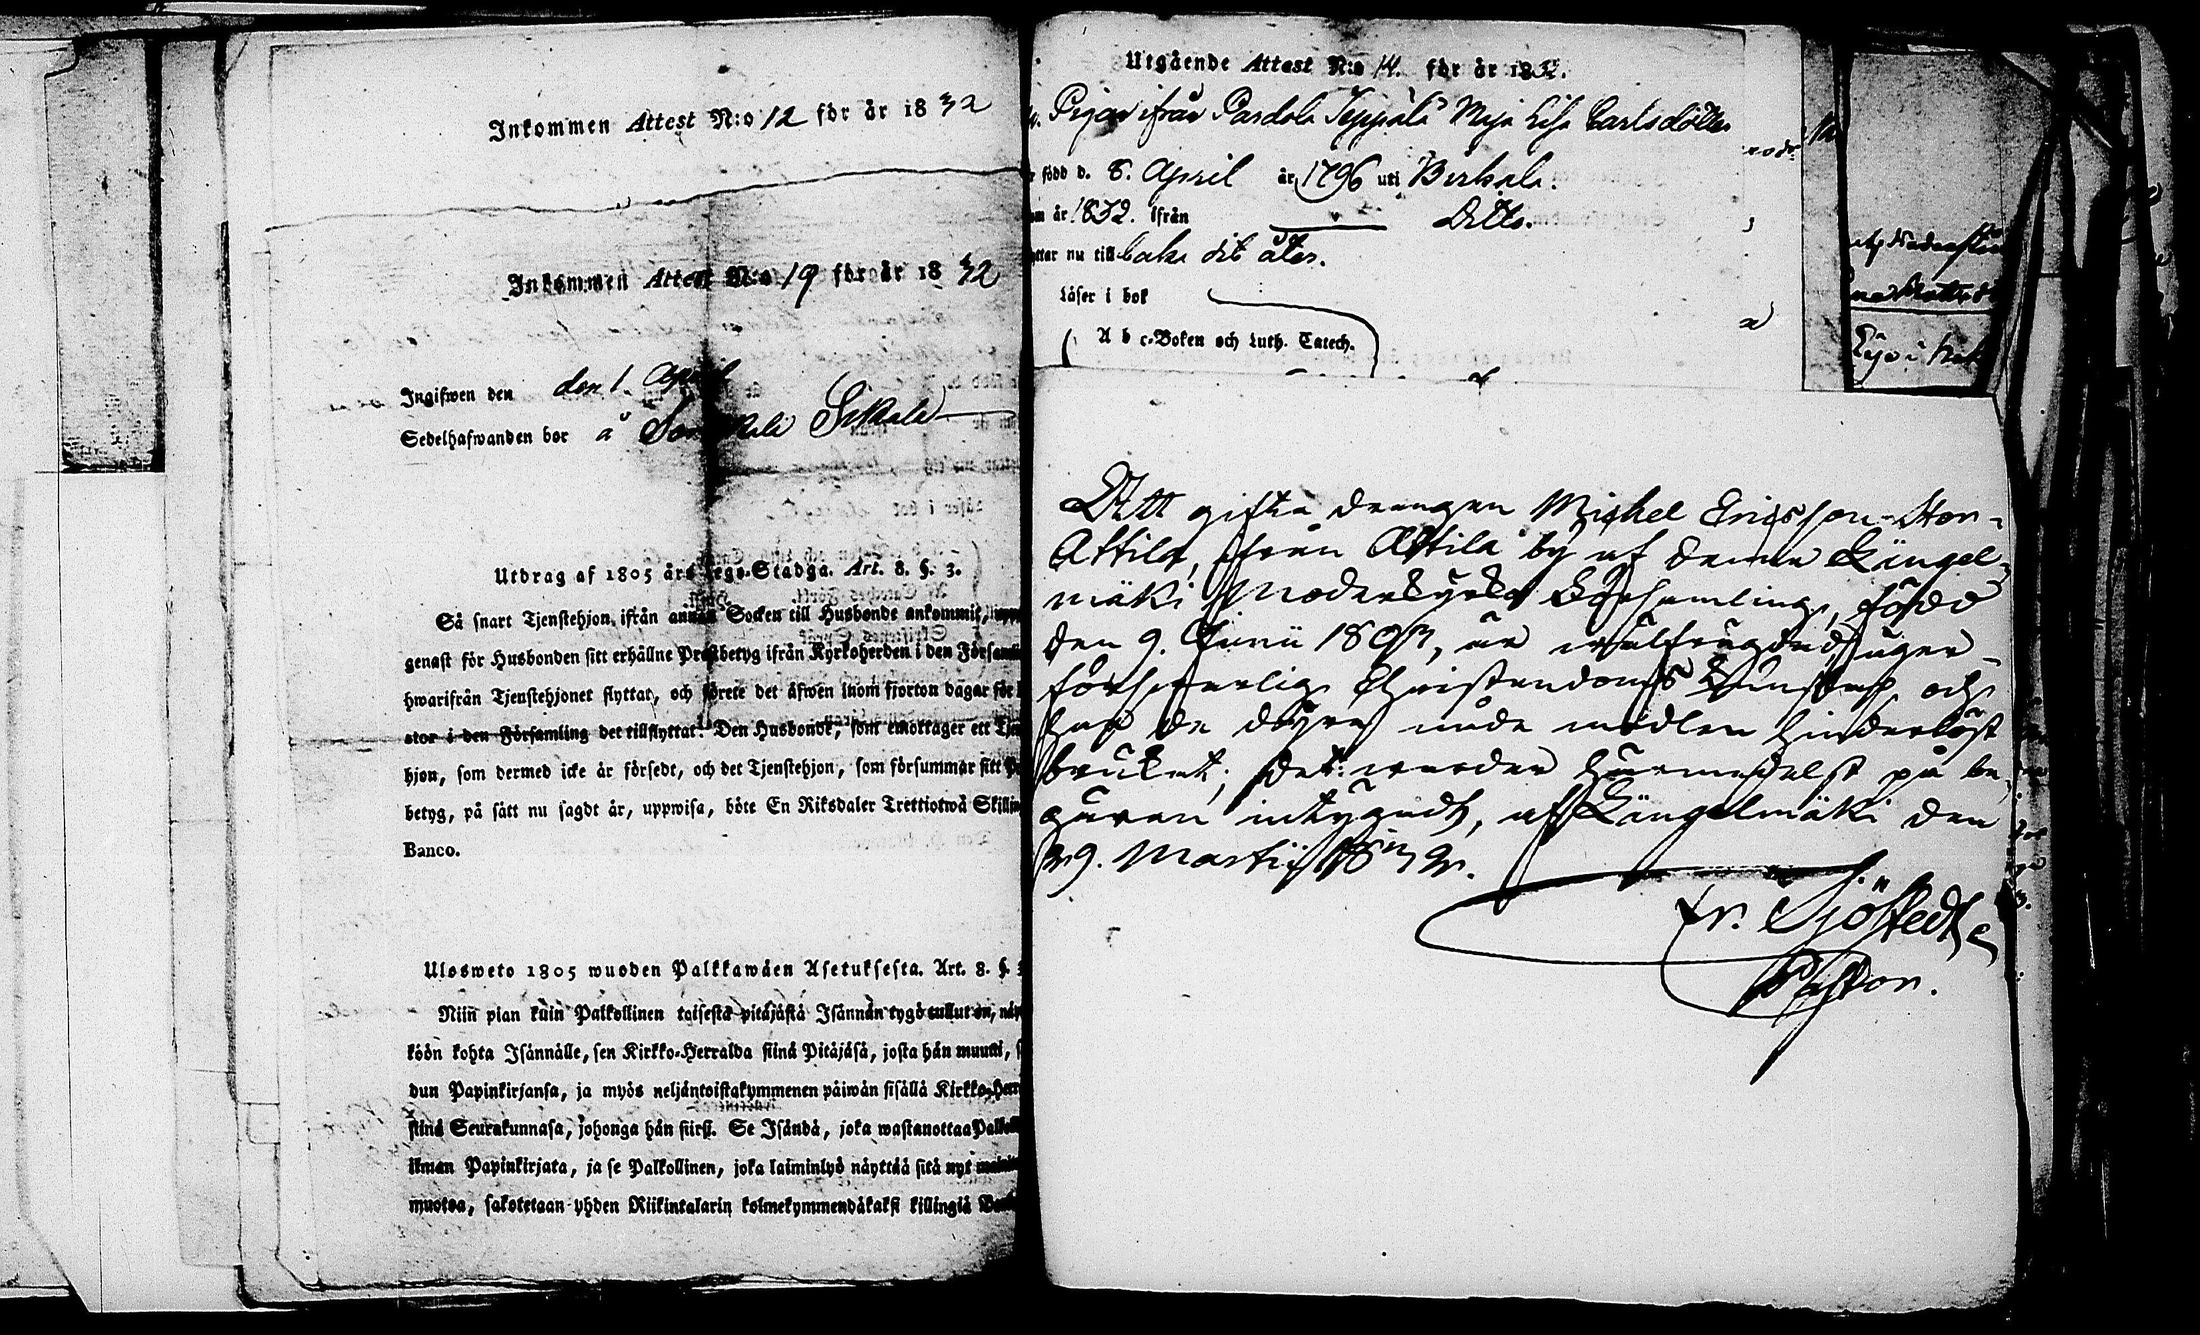 Inkommen Attest N:o 12 för år 1832
Inkommen Attest N:o 19 för år 1832
Ingifwen den den 1. April
Sedelhafwanden bor å
Utdrag af 1805 års Lego-Stadga. Art. 8. §. 3.
Så snart Tjenstehjon ifrån annan Socken till Husbonde ankommit,
genast för Husbonden sitt erhållne Prestbetyg ifrån Kyrkoherden i den
hwarifrån Tjenstehjonet flyttat, och förete det äfwen inom fjorton dagar för
stor i den Församling det tillflyttat. Den Husbonde, som emottager ett
hjon, som dermed icke är försedt, och det Tjenstehjon, som försummar sitt
betyg, på sätt nu sagdt är, uppwisa, böte En Riksdaler Trettiotwå
Banco.
Ulosweto 1805 wuoden Palkkawäen Asetuksesta. Art. 8. §. 3
Niin pian kuin Palkollinen toisesta pitäjästä Isännän tygö tullut on,
köön kohta Isännälle, sen Kirkko-Herralda siinä Pitäjäsä, josta hän muutti,
dun Papinkirjansa, ja myös neljäntoistakymmenen päiwän sisällä
siinä Seurakunnasa, johonga hän siirsi. Se Isändä, joka wastanottaa
ilman Papinkirjata, ja se Palkollinen, joka laiminlyö näyttää sitä nyt
muotoa, sakotetaan yhden Riikintalarin kolmekymmendäkaksi killingiä
Utgående Attest N:o 14. för år 1832.
Pigan ifrån Pardola Seppälä Maja Lisa Carlsdotter
född d. 8. April år 1796 uti Birkala.
år 1832. ifrån Ditto.
nu tillbaka dit åter.
Läser i bok
A b c-Boken och Luth. Catech.
Att gifta drängen Michel Ericsson Stor-
Attila, från Attila by af denna Längel-
mäki Moderkyrko Församling, född
den 9. Junii 1803, är wälfrägdad, äger
försvarlig Christendoms Kunskap och
har de dyra nåde medlen hinderlöst
brukat; det warder härmedelst på be-
gäran intygadt, af Längelmäki den
29. Martii 1832.
Fr. Sjöstedt
Pastor.